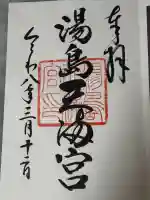 奉拝
湯島天満宮
令和八年三月十日